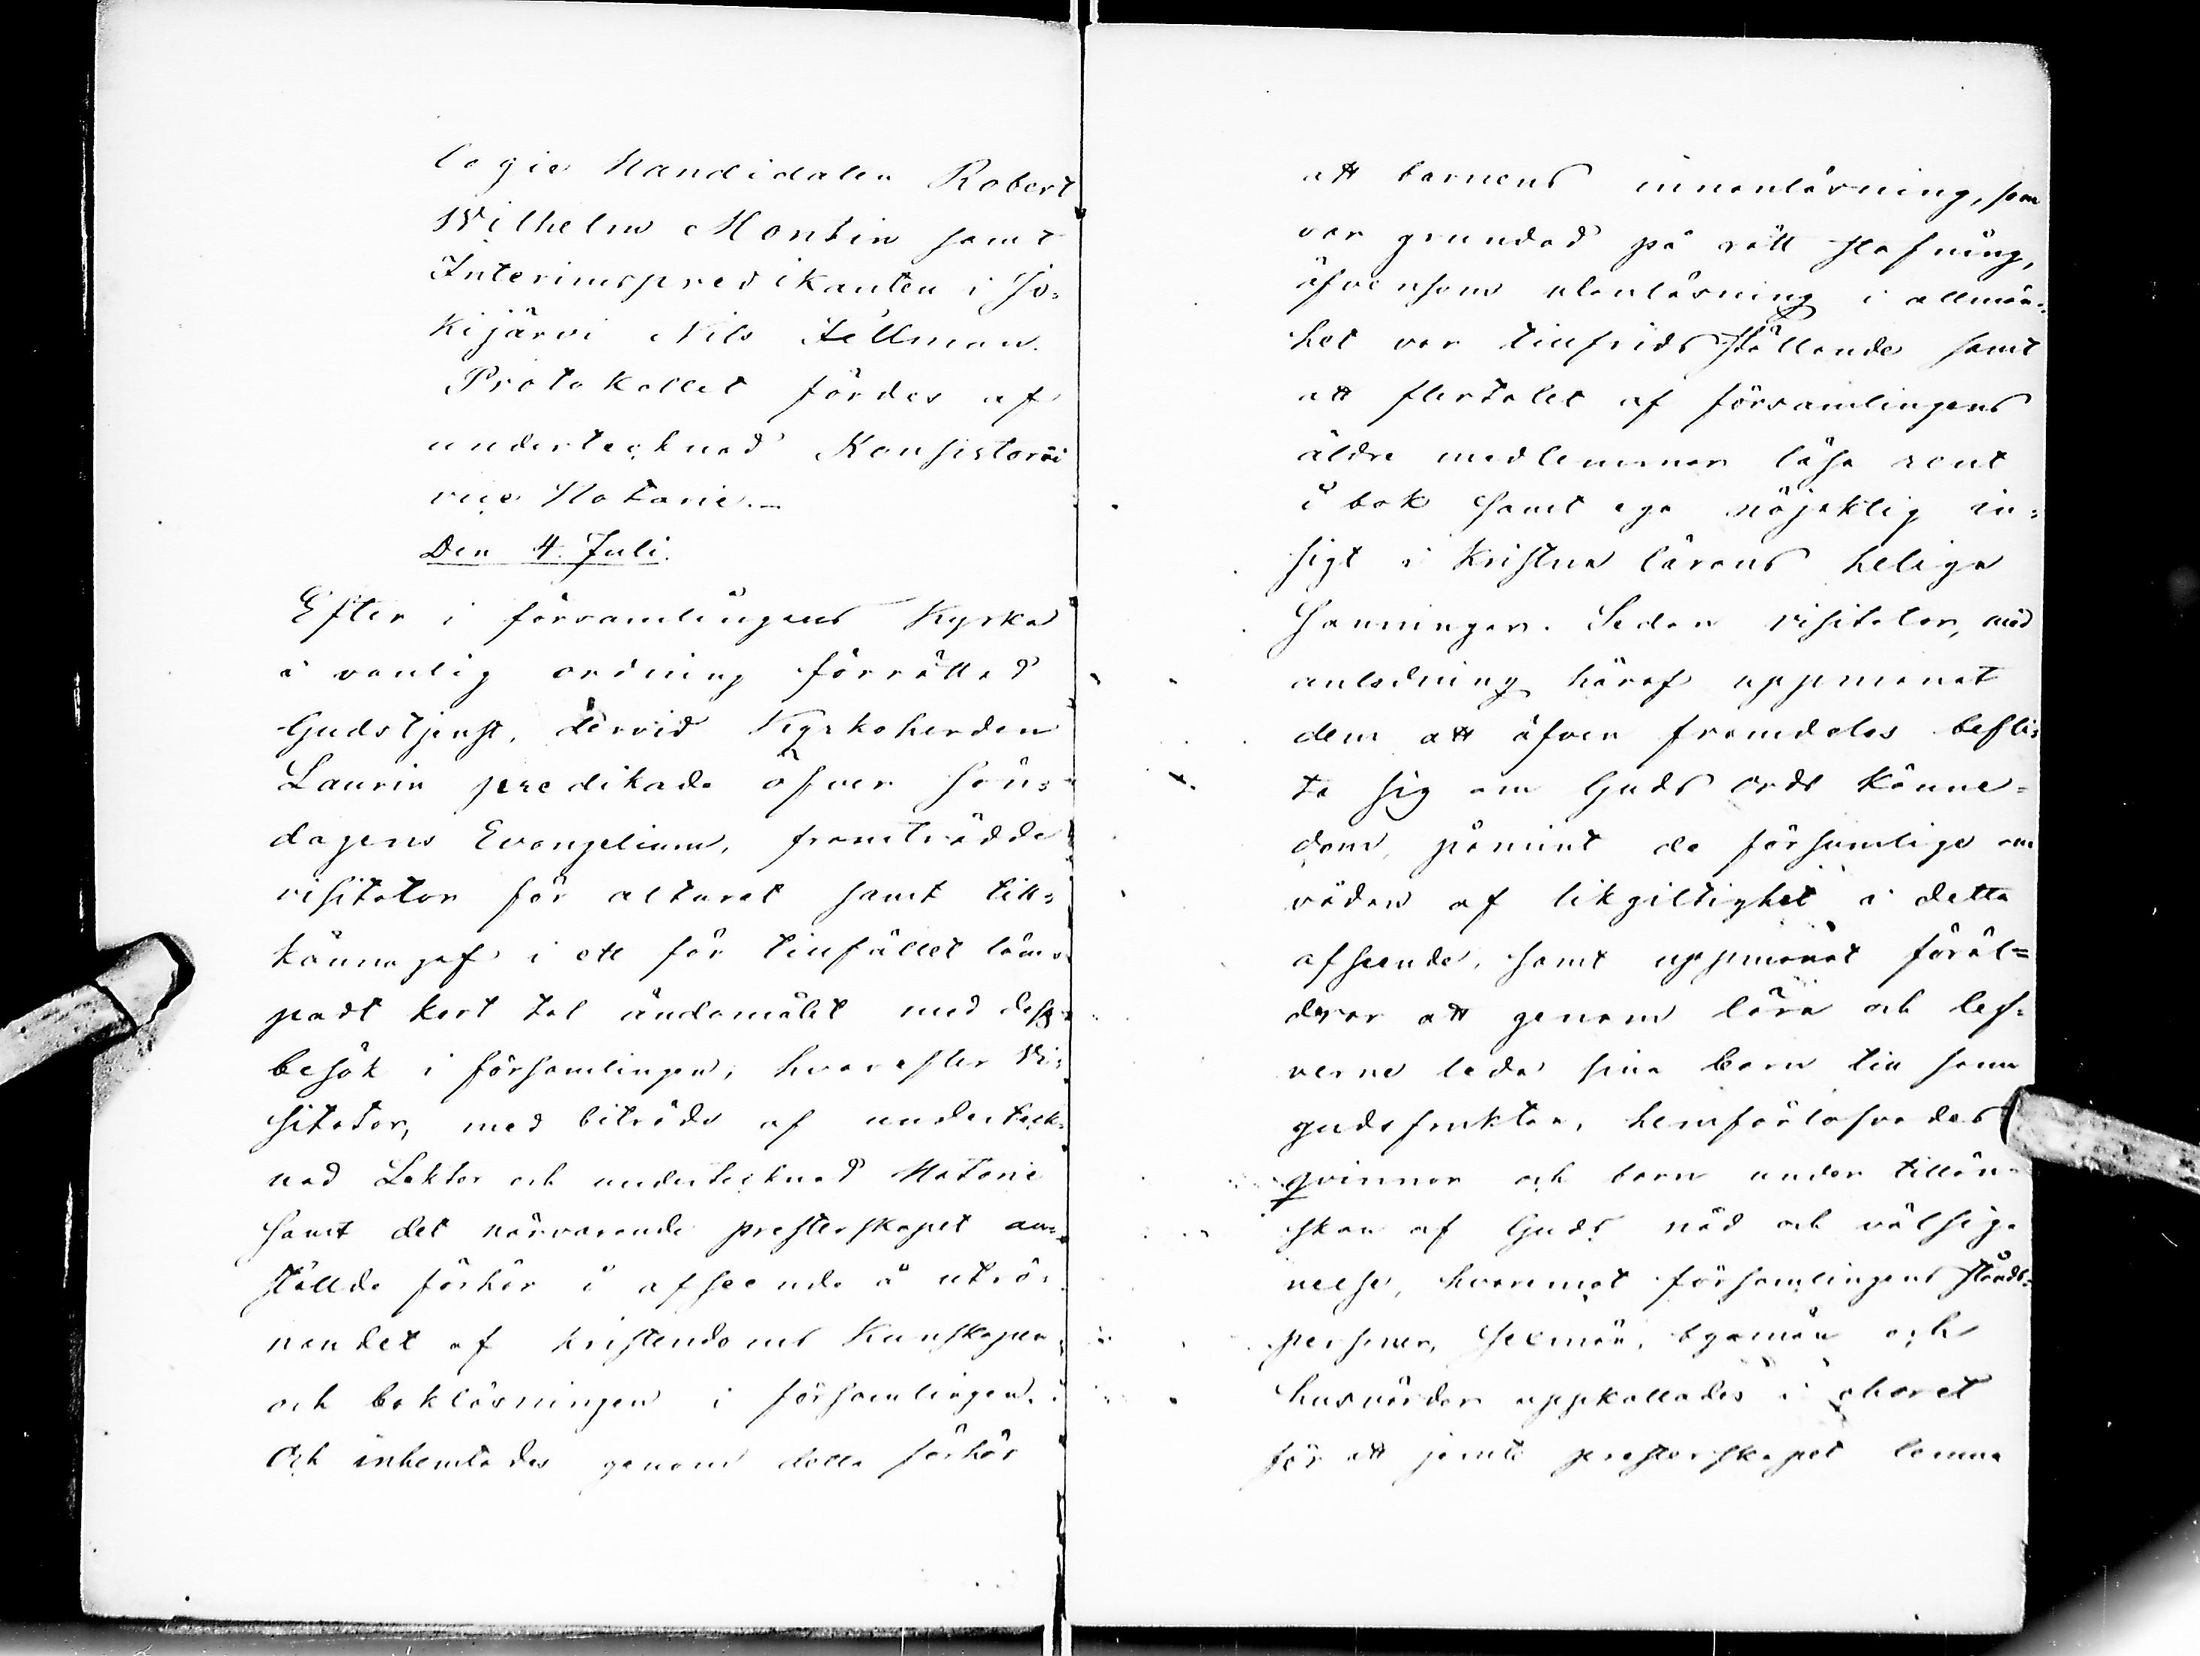 logie Kandidaten Robert
Wilhelm Montin samt
Interimspredikanten i Jo=
kijärvi Nils Fellman.
Protokollet fördes af
undertecknad Konsistorii
vice Notarie.—
Den 4. Juli.
Efter i församlingens Kyrka
i vanlig ordning förrättad
Gudstjenst, dervid Kyrkoherden
Laurin predikade öfver sön=
dagens Evangelium, framträdde
visitator för altaret samt till=
kännagaf i ett för tillfället läm=
padt kort tal ändamålet med dess
besök i församlingen, hvarefter Vi=
sitator, med biträde af underteck=
nad Lektor och undertecknad Notarie
samt det närvarande presterskapet an=
ställde förhör i afseende å utrö=
nandet af kristendoms kunskapen
och bokläsningen i församlingen.
Och inhemtades genom detta förhör
att barnens innanläsning, som
var grundad på rätt stafning,
äfvensom utanläsning i allmän=
het var tillfridsställande samt
att flertalet af församlingens
äldre medlemmar läsa rent
i bok samt ega nöjaktig in=
sigt i Kristna lärans heliga
sanningar. Sedan visitator, med
anledning häraf uppmanat
dem att äfven framdeles befli=
ta sig om Guds ords känne=
dom, påmint de försumliga om
vådan af likgiltighet i detta
afseende, samt uppmanat föräl=
drar att genom lära och lef=
verne leda sina barn till sann
gudsfruktan, hemförlofvades
qvinnor och barn under tillön=
skan af Guds nåd och välsig=
nelse, hvaremot församlingens stånds=
personer, sexmän, byamän och
husvärdar uppkallades i choret
för att jemte presterskapet lemna